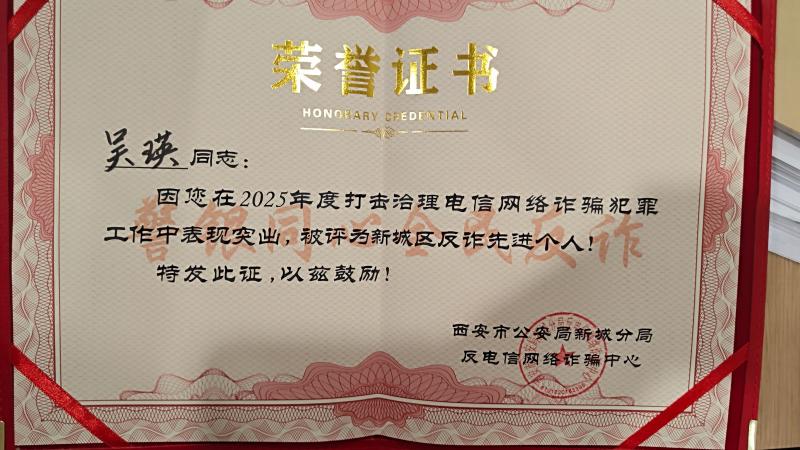 荣誉证书
HONORARY CREDENTIAL
吴瑛 同志：
因您在2025年度打击治理电信网络诈骗犯罪
工作中表现突出，被评为新城区反诈先进个人！
特发此证，以兹鼓励！
警银同心全民反诈
西安市公安局新城分局
反电信网络诈骗中心